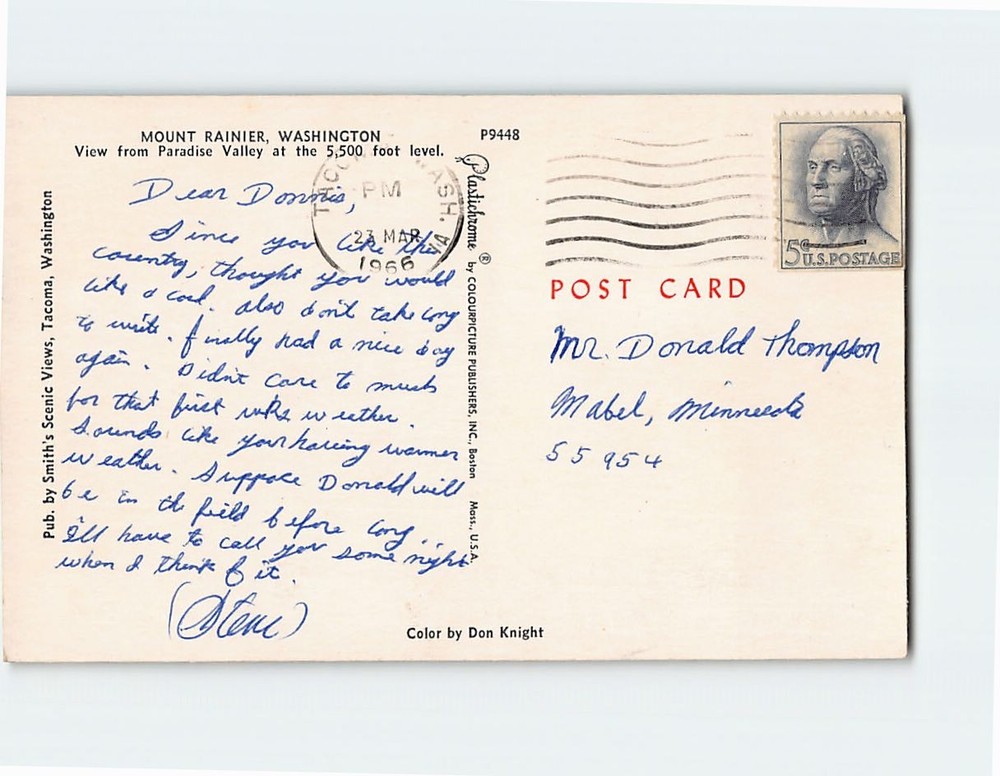 MOUNT RAINIER, WASHINGTON
View from Paradise Valley at the 5,500 foot level.
P9448
Pub. by Smith's Scenic Views, Tacoma, Washington
Dear Donnis,
Since you like this
country, thought you would
like a card. also don't take long
to write. finally had a nice day
again. Didn't care to much
for that first wks weather.
Sounds like your having warmer
weather. Suppose Donald will
be in the field before long.
I'll have to call you some night
when I think of it.
(Steve)
Color by Don Knight
Plastichrome ® by COLOURPICTURE PUBLISHERS, INC., Boston Mass., U.S.A.
WASH.
PM
23 MAR
1966
5¢ U.S. POSTAGE
POST CARD
Mr. Donald Thompson
Mabel, Minnesota
55954